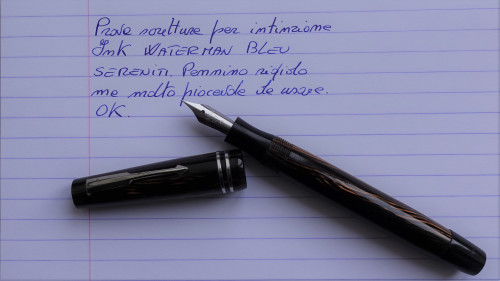 Prove scritture per intinzione
Ink WATERMAN BLEU
SERENITI. Pennino rigido
ma molto piacevole da usare.
OK.